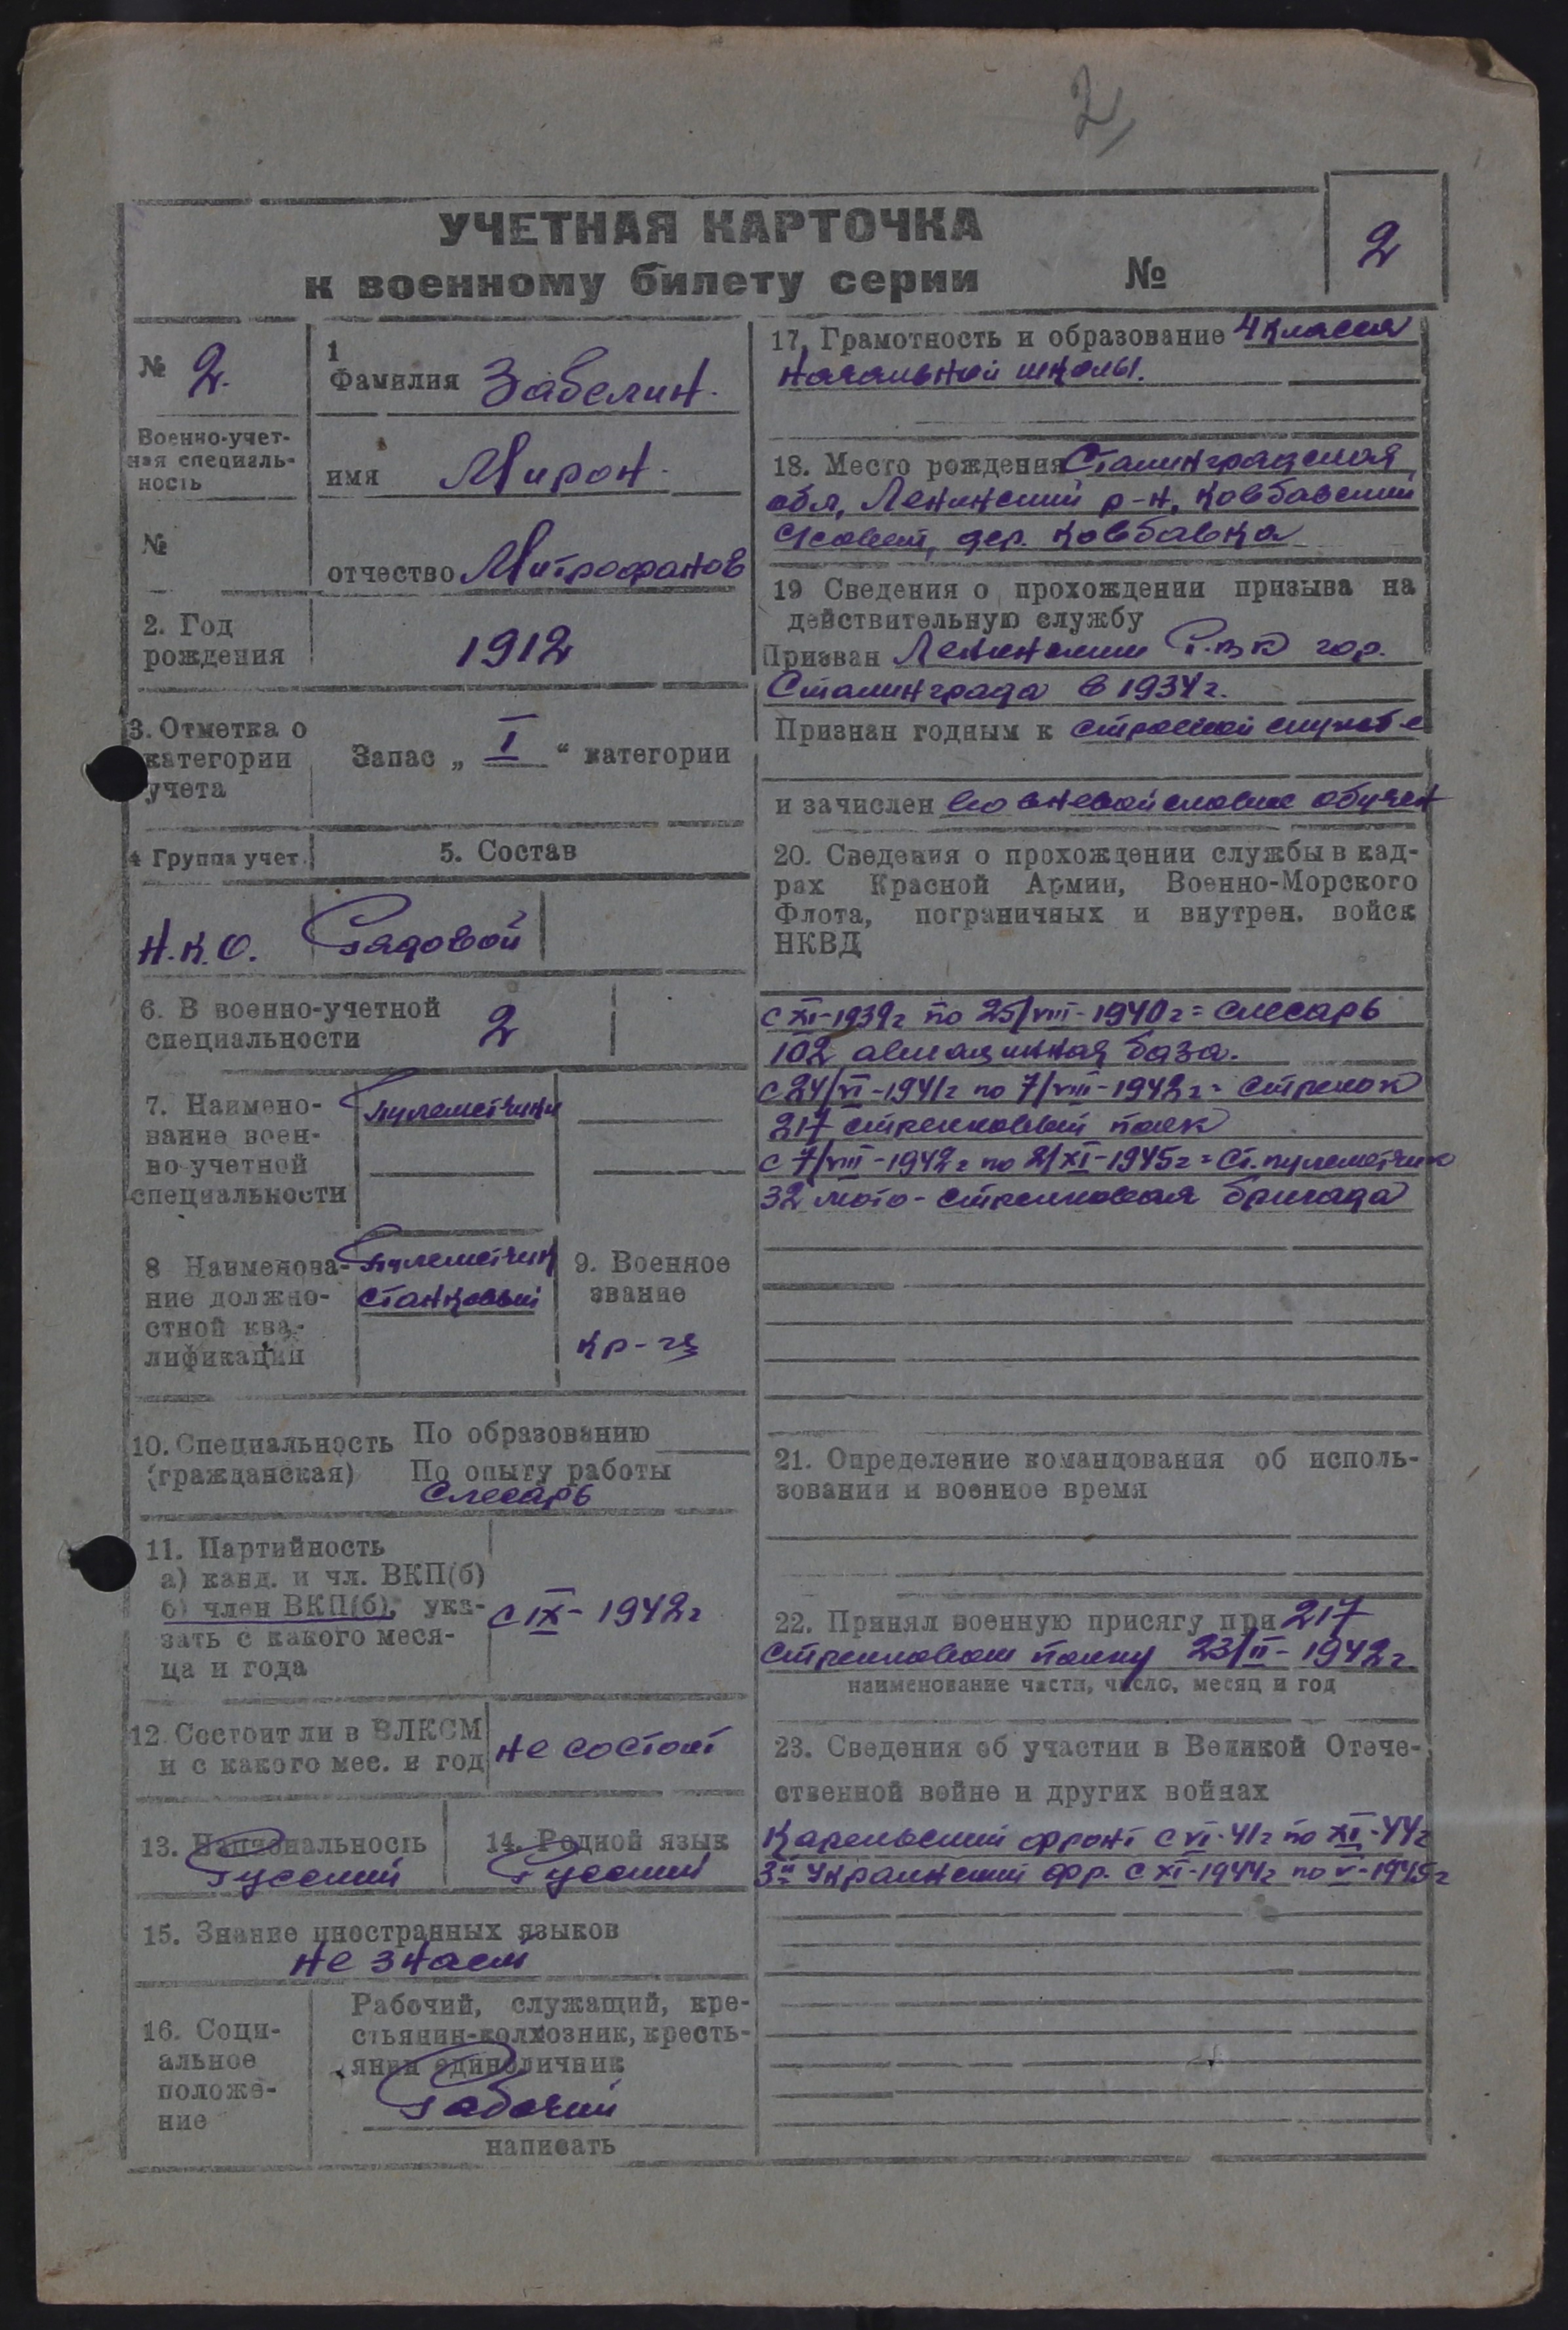 2
УЧЕТНАЯ КАРТОЧКА
к военному билету серии №
2
№ 2.
Военно-учет-
ная специаль-
ность
№
1
Фамилия Забелин.
имя Мирон.
отчество Митрофанов
2. Год
рождения
1912
3. Отметка о
категории
учета
Запас „ I “ категории
4 Группа учет.
5. Состав
Н.К.О.
Рядовой
6. В военно-учетной
специальности
2
7. Наимено-
вание воен-
но-учетной
специальности
Пулеметчики
8 Наименова-
ние должно-
стной ква-
лификации
Пулеметчик
станковый
9. Военное
звание
кр-ец
10. Специальность
(гражданская)
По образованию
По опыту работы
Слесарь
11. Партийность
а) канд. и чл. ВКП(б)
б) член ВКП(б), ука-
зать с какого меся-
ца и года
с IX - 1942г
12. Состоит ли в ВЛКСМ
и с какого мес. и год
не состоит
13. Национальность
Русский
14. Родной язык
Русский
15. Знание иностранных языков
не знает
16. Соци-
альное
положе-
ние
Рабочий, служащий, кре-
стьянин-колхозник, кресть-
янин единоличник
Рабочий
написать
17. Грамотность и образование 4 класса
начальной школы.
18. Место рождения Сталинградская
обл, Ленинский р-н, Ковбавский
с/совет, дер. Ковбавка
19 Сведения о прохождении призыва на
действительную службу
Призван Ленинским Р.В.К гор.
Сталинграда в 1934г.
Признан годным к строевой службе
и зачислен во вневойсковое обучен
20. Сведения о прохождении службы в кад-
рах Красной Армии, Военно-Морского
Флота, пограничных и внутрен. войск
НКВД
с XI-1939г по 25/VIII-1940г = слесарь
102 авиационная база.
с 24/VI-1941г по 7/VIII-1942г = стрелок
217 стрелковый полк
с 7/VIII-1942г по 2/XI-1945г = Ст. пулеметчик
32 мото-стрелковая бригада
21. Определение командования об исполь-
зовании и военное время
22. Принял военную присягу при 217
стрелковом полку 23/II-1942г.
наименование части, число, месяц и год
23. Сведения об участии в Великой Отече-
ственной войне и других войнах
Карельский фронт с VI-41г по XI-44г
3й Украинский фр. с XI-1944г по V-1945г